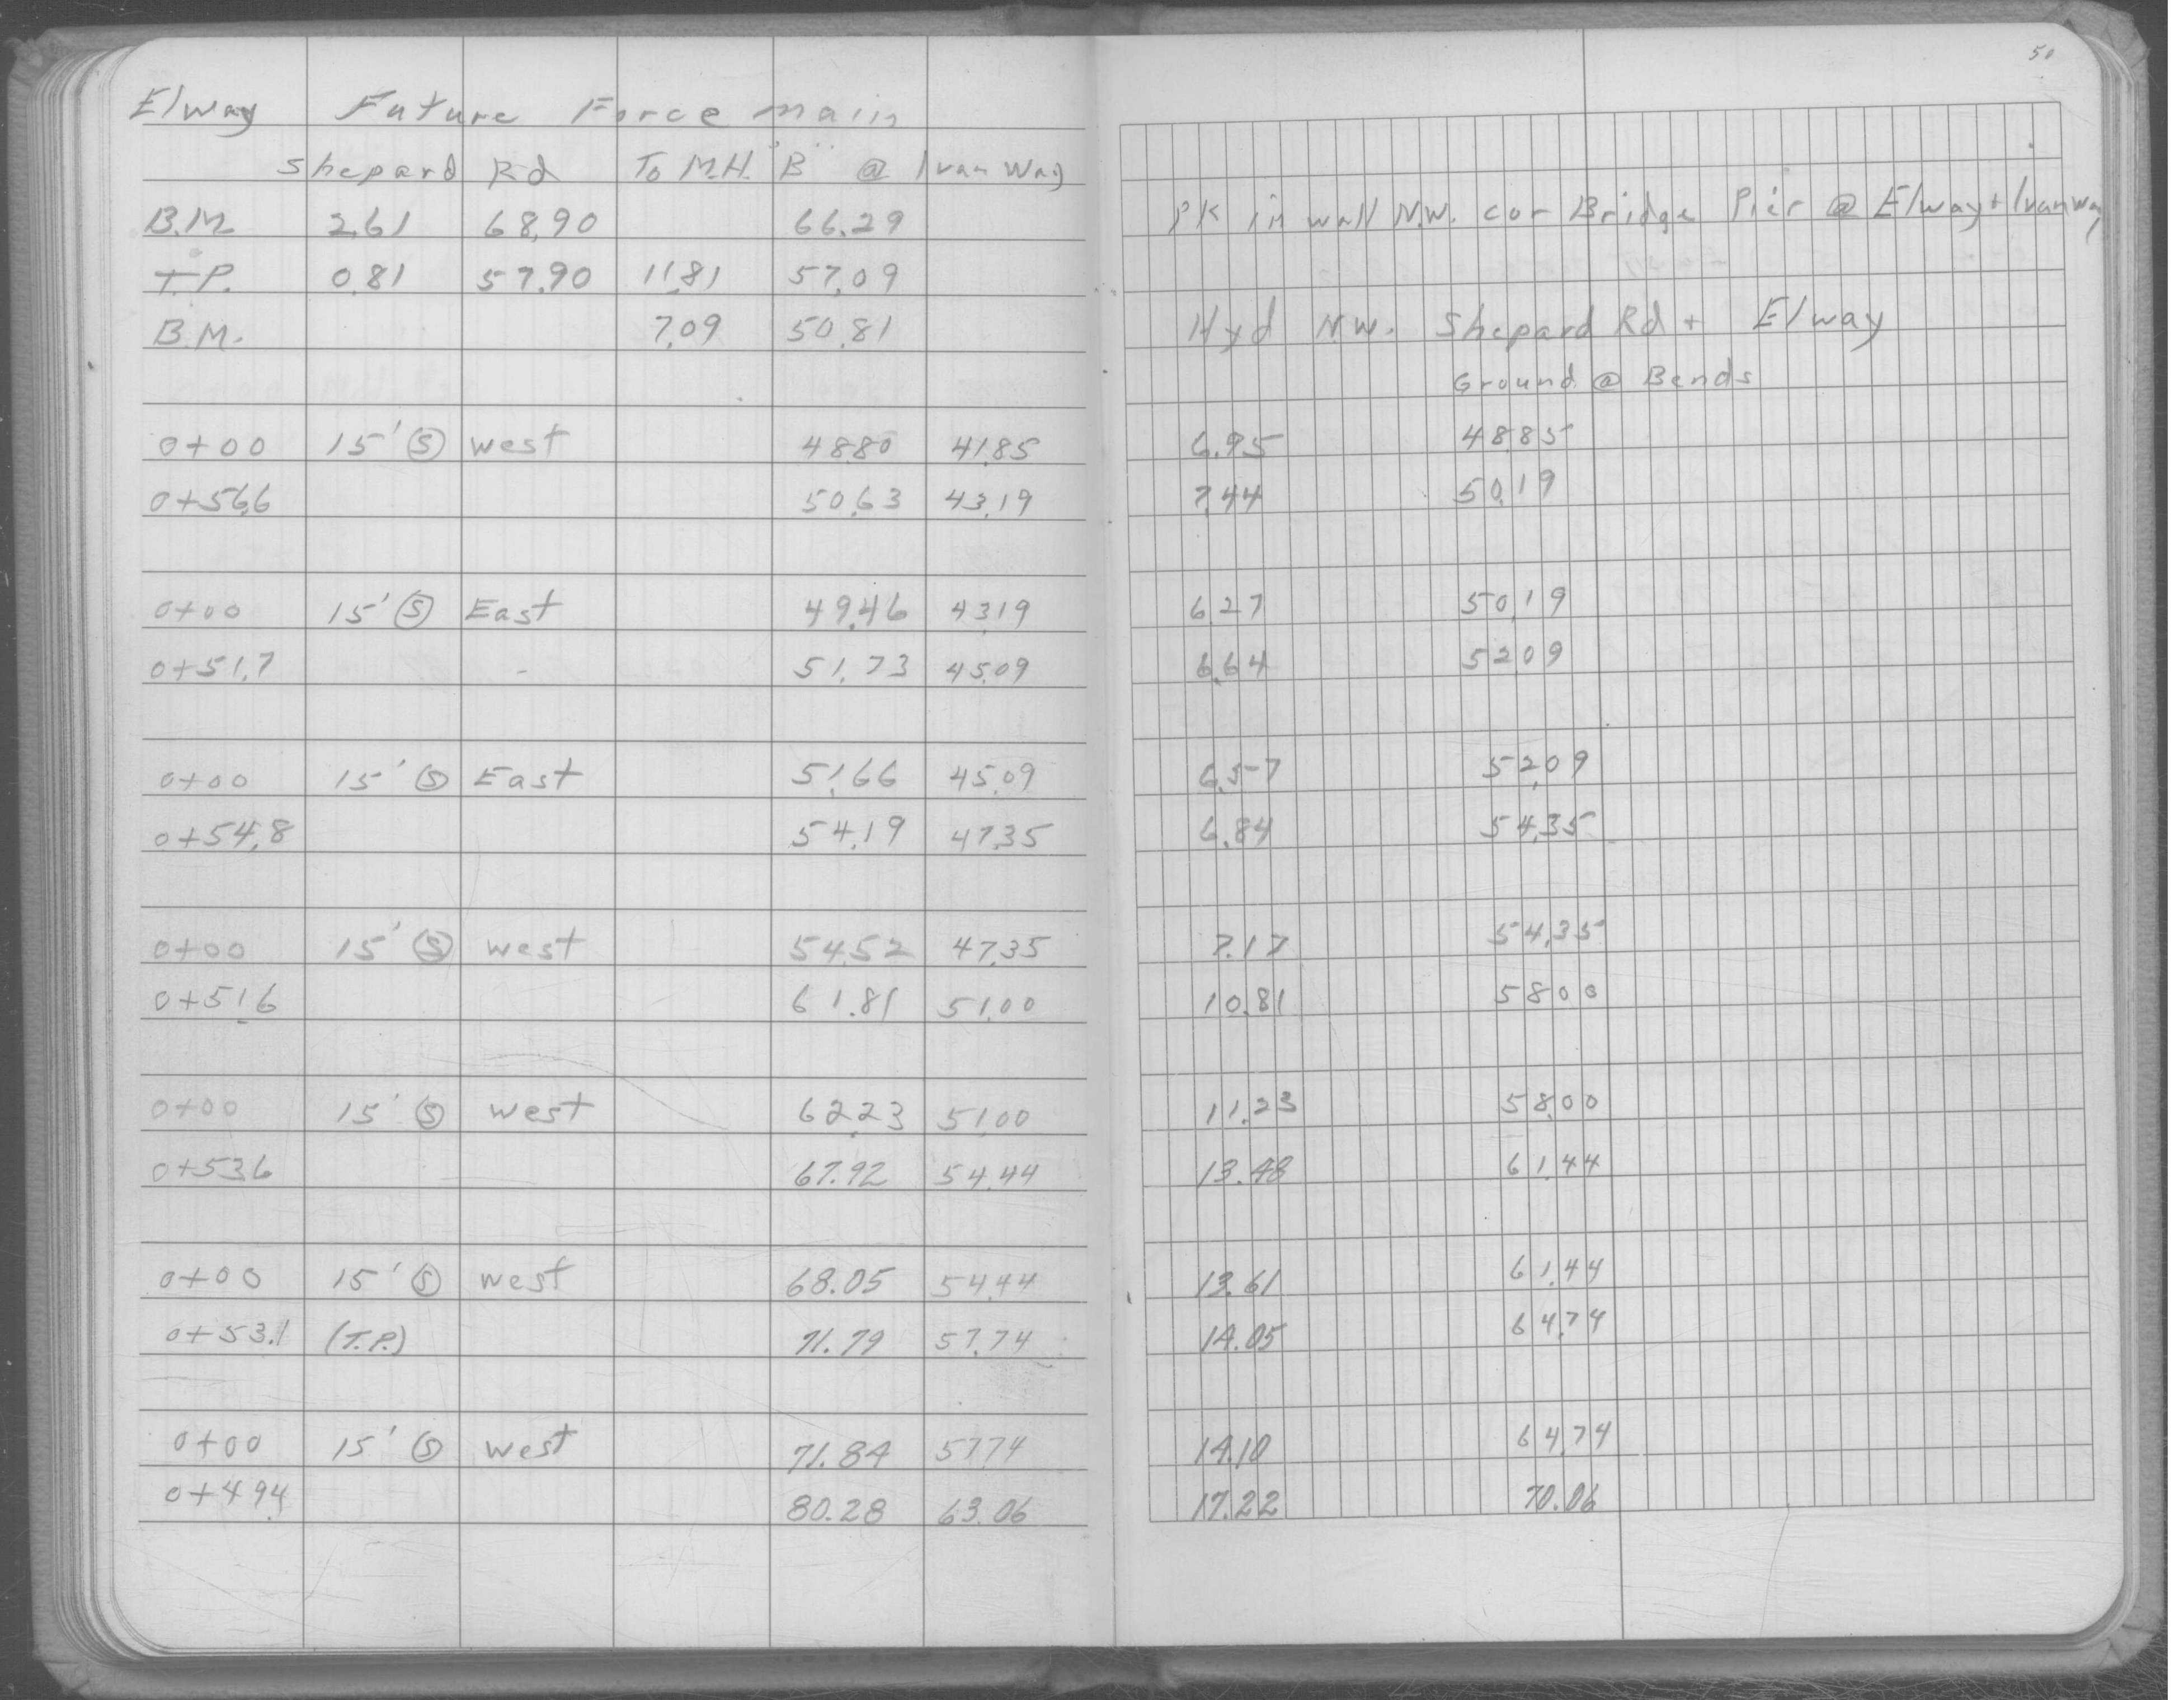 50
Elway Future Force main
Shepard Rd To M.H. "B" @ Ivan Way
B.M. 2.61 68.90 66.29 PK in wall N.W. cor Bridge Pier @ Elway + Ivanway
T.P. 0.81 57.90 11.81 57.09
B.M. 7.09 50.81 Hyd N.W. Shepard Rd + Elway
Ground @ Bends
0+00 15' Ⓢ West 48.80 41.85 6.95 48.85
0+56.6 50.63 43.19 7.44 50.19
0+00 15' Ⓢ East 49.46 43.19 6.27 50.19
0+51.7 51.73 45.09 6.64 52.09
0+00 15' Ⓢ East 51.66 45.09 6.57 52.09
0+54.8 54.19 47.35 6.84 54.35
0+00 15' Ⓢ West 54.52 47.35 7.17 54.35
0+51.6 61.81 51.00 10.81 58.00
0+00 15' Ⓢ West 62.23 51.00 11.23 58.00
0+53.6 67.92 54.44 13.48 61.44
0+00 15' Ⓢ West 68.05 54.44 13.61 61.44
0+53.1 (T.P.) 71.79 57.74 14.05 64.74
0+00 15' Ⓢ West 71.84 57.74 14.10 64.74
0+49.4 80.28 63.06 17.22 70.06